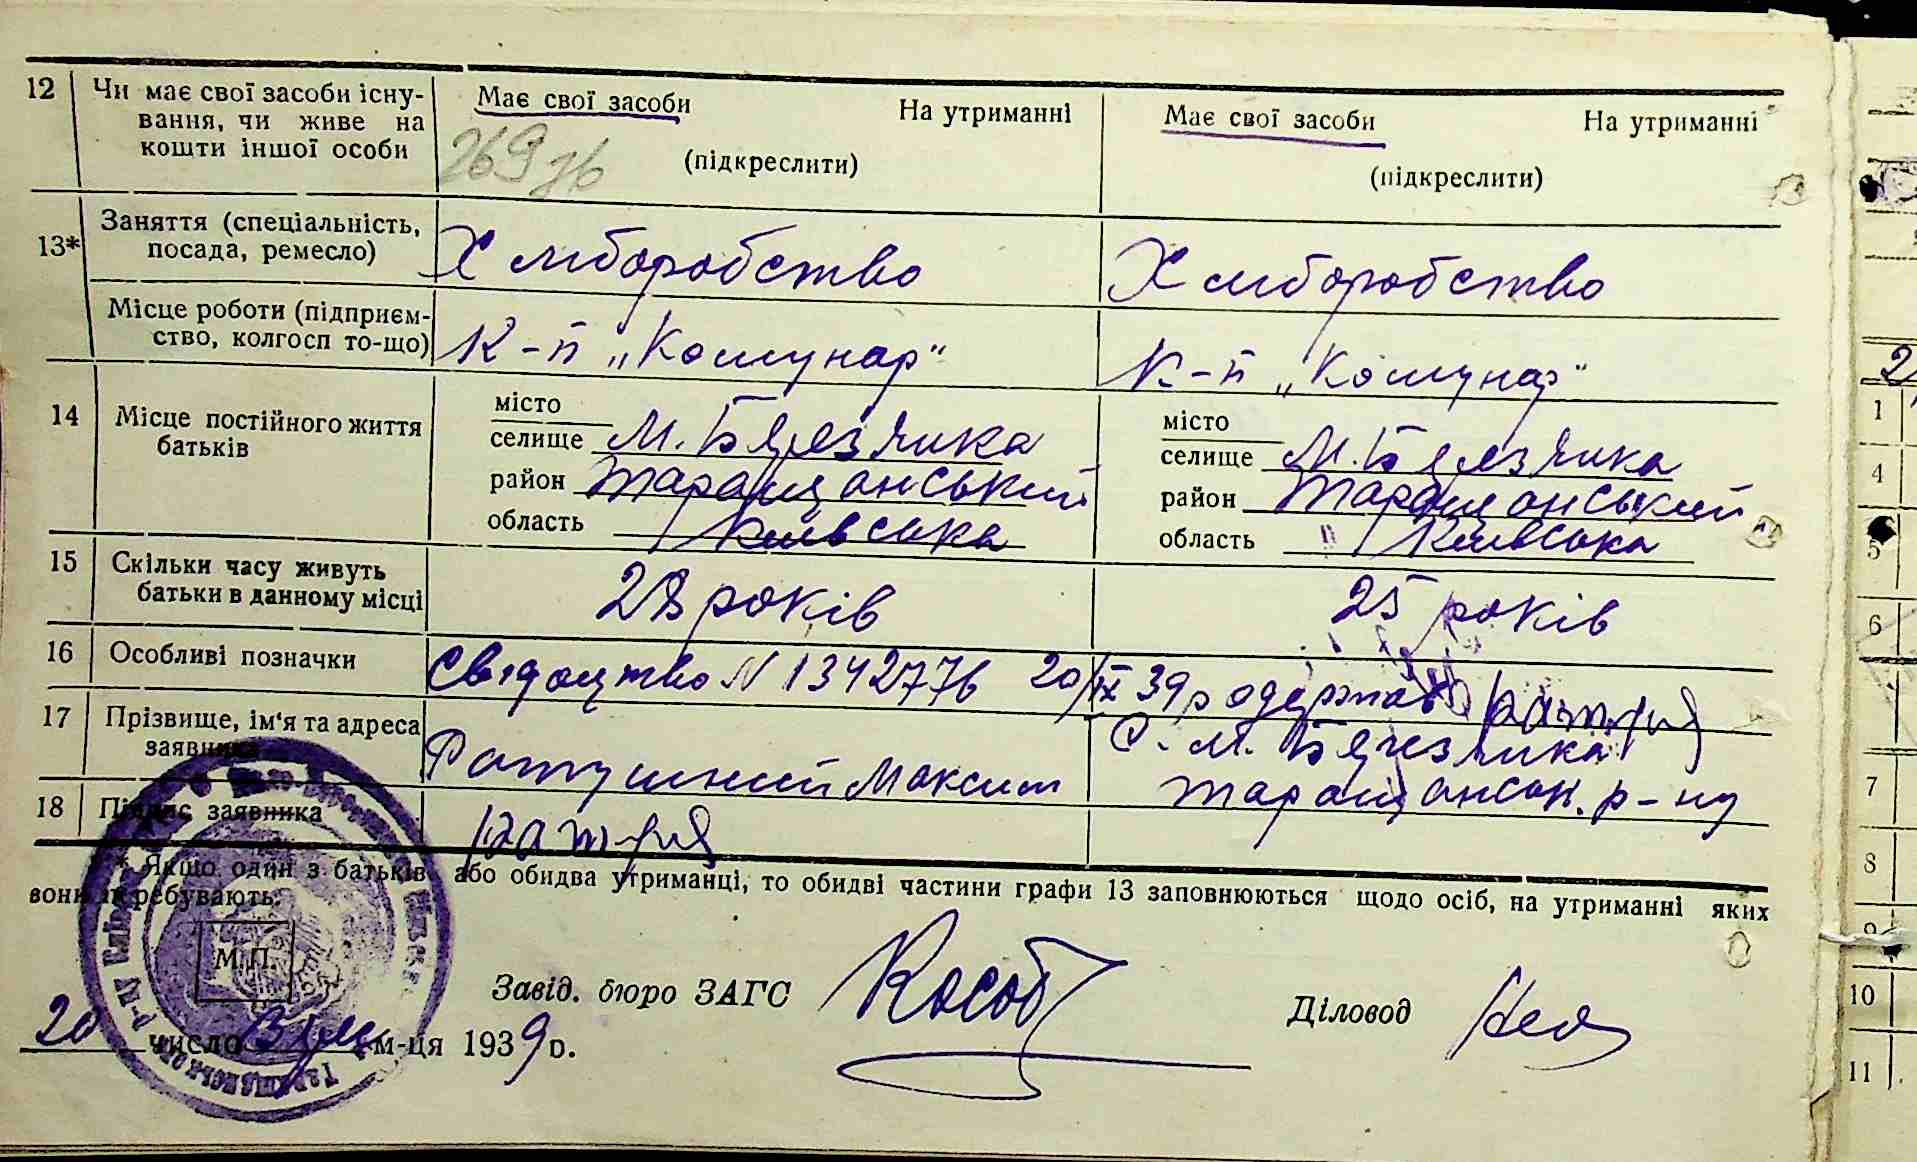 12 Чи має свої засоби існу- Має свої засоби На утриманні Має свої засоби На утриманні
вання, чи живе на
кошти іншої особи (підкреслити) (підкреслити)
13* Заняття (спеціальність,
посада, ремесло) Хліборобство Хліборобство
Місце роботи (підприєм-
ство, колгосп то-що) К-п „Комунар" К-п „Комунар"
14 Місце постійного життя місто місто
батьків селище М. Березянка селище М. Березянка
район Таращанський район Таращанський
область Київська область Київська
15 Скільки часу живуть
батьки в данному місці 28 років 25 років
16 Особливі позначки Свідоцтво N 1342776 20/IX 39 р одержав
17 Прізвище, ім'я та адреса С. М. Березянка
заявника Ратушний Максим Таращанськ. р-ну
18 Підпис заявника
* Якщо один з батьків або обидва утриманці, то обидві частини графи 13 заповнюються щодо осіб, на утриманні яких
вони перебувають.
М.П.
Завід. бюро ЗАГС Діловод
20 число м-ця 1939 р.
1
4
5
6
7
8
9
10
11